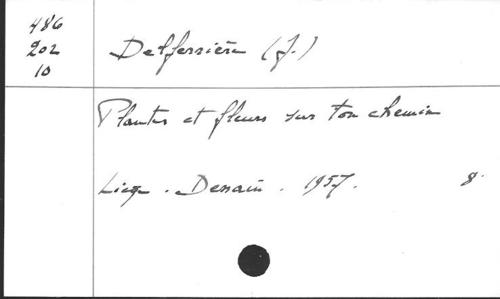 486
202
10
Delferrière (J.)
Plantes et fleurs sur ton chemin
Liège. Dessain. 1957. 8°